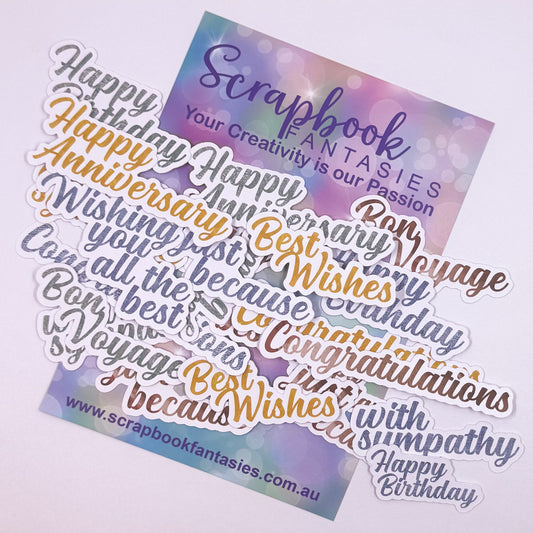 Scrapbook
FANTASIES
Your Creativity is our Passion
Happy
Birthday
Happy
Anniversary
Happy
Anniversary
Bon
Voyage
Wishing
you
all the
best
just
because
Best
Wishes
Birthday
Congratulations
Congratulations
Bon
Voyage
Best
Wishes
because
with
sympathy
Happy
Birthday
www.scrapbookfantasies.com.au